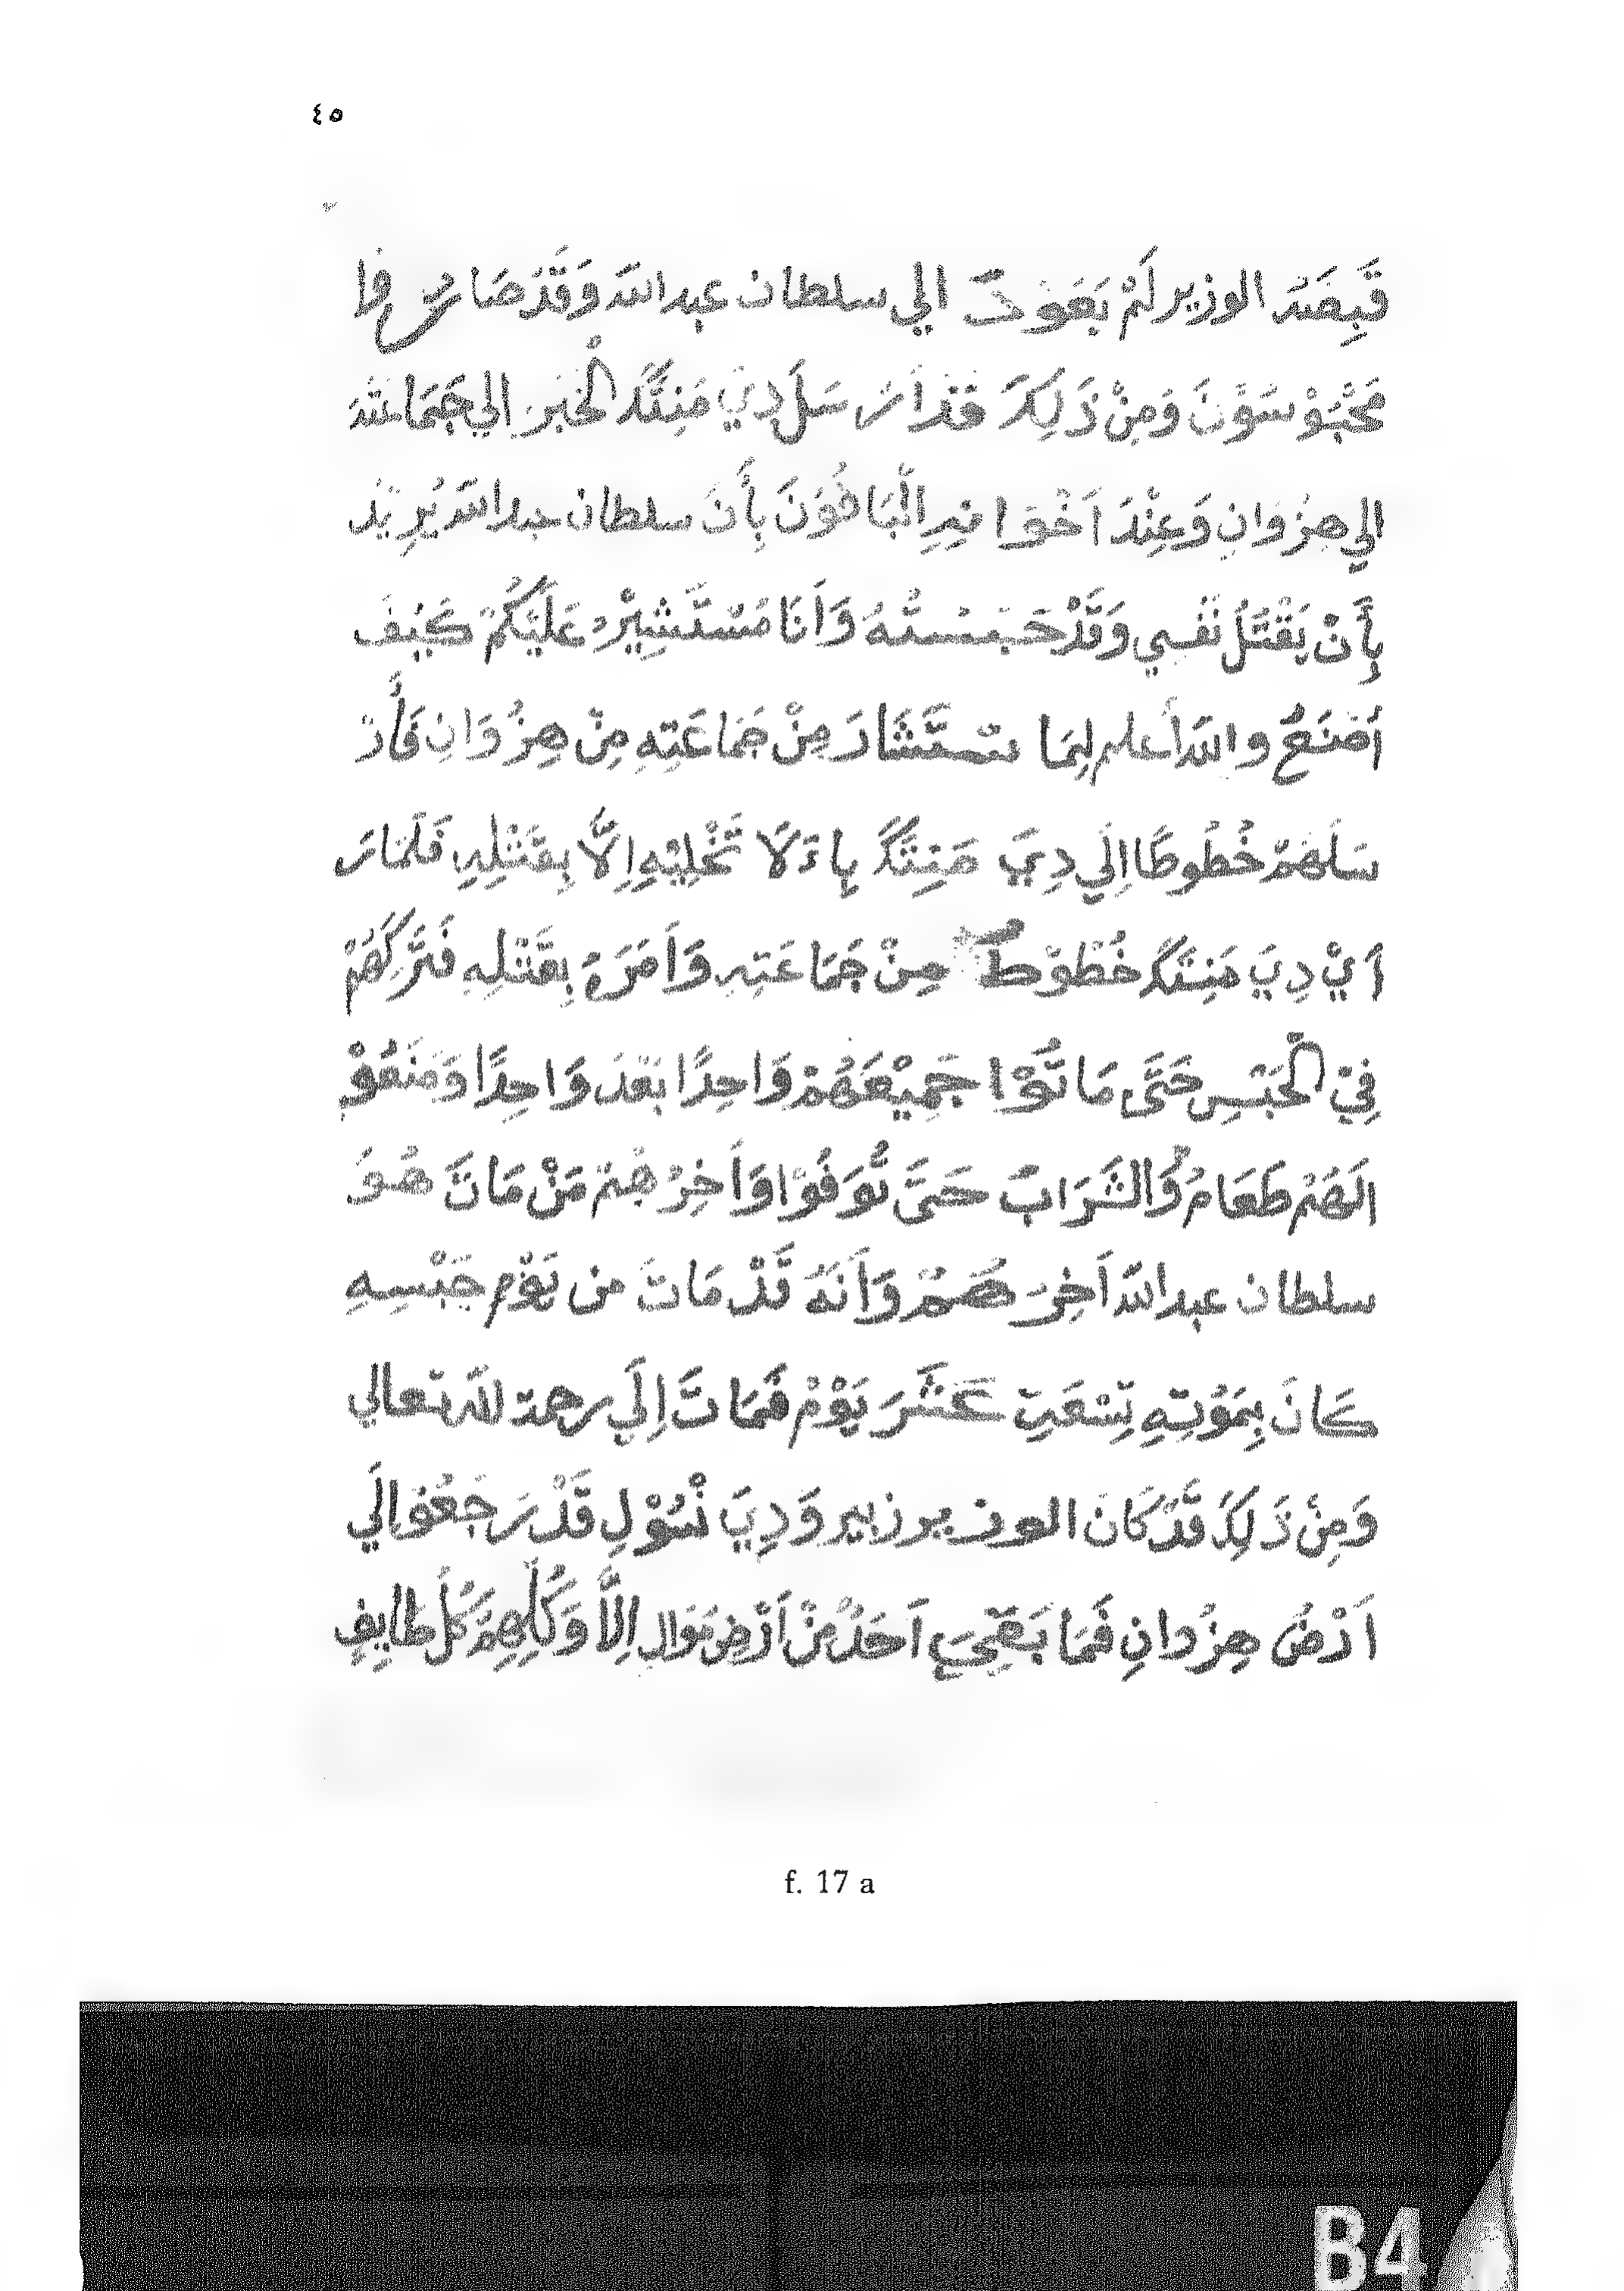 ٤٥
قَبِضَتَ الوزير لَمْ يَعَوْدَ الي سلطان عبدالله وَقَدْ صَارَ وا
مَحْبُوْسُوْنَ وَمِنْ ذَلِكَ قَدْ اَرْسَلَ دِيَ مَنِتَكَ الْخَبَرَ الي جَمَاعَتَهَ
الي هِزُوَانِ وَعِنْدَ اَخَوَانِهِ الْبَاقُوْنَ بِأَنَّ سلطان عبدالله يُرِيْدُ
بِأَنْ يَقْتَلُ نَفْسِي وَقَدْ حَبَسْتُهُ وَاَنَا مُسْتَشِيْرْ عَلَيْكُمْ كَيْفَ
أَصْنَعُ والله أعلم لِمَا ستَشَارَ مِنْ جَمَاعَتِهِ مِنْ هِزُوَانِ فَأَرْ
سَلَهُمْ خُطُوطًا اِلَي دِيَ مَنِتَكَ بِاءَلَا تَخْلِيْهِ اِلَّا بِقَتْلِهِ فَلَمَا رَ
اَيْ دِيَ مَنِتَكَ خُطُوْطً مِنْ جَمَاعَتِهِ وَاَمَرَهُ بِقَتْلِهِ فَتَرَكَهُمْ
فِيْ الْحَبْسِ حَتَّى مَاتُوْا جَمِيْعَهُمْ وَاحِدًا بَعْدَ وَاحِدًا وَمَنَعُوْ
الَهُمْ طَعَامُ وَالشَرَابَ حَتَّى تُوَفُوْا وَاَخِرُهُمْ مَنْ مَاتَ هُوَ
سلطان عبدالله اَخِرَهُمْ وَاَنَهُ قَدْ مَاتَ من يَوْمِ حَبْسِهِ
كَانَ بِمَوْتِهِ تِسْعَةِ عَشَرَ يَوْمُ فَمَاتَ اِلَي رحمة الله تعالي
وَمِنْ ذَلِكَ قَدْ كَانَ الوزير زبير وَدِيَ نْسُوْلِ قَدْ رَجَعُوْالَي
اَرْضُ هِزُوانِ فَمَا بَقِيَ اَحَدُ مِنْ اَرْضِ مَوَالِ اِلَّا وَكُلُهِمْ كُلَ طَايِفِ
f. 17 a
B4